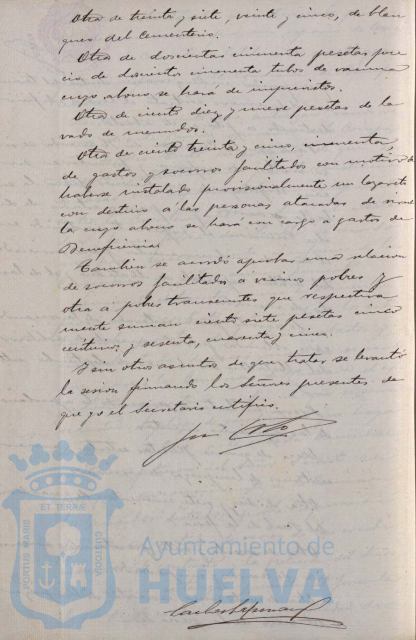 Otra de treinta y siete, veinte y cinco, de blan
queo del Cementerio.
Otra de doscientas cincuenta pesetas pre
cio de doscientos cincuenta tubos de vacuna
cuyo abono se hará de imprevistos.
Otra de ciento diez y nueve pesetas de la
vado de menudos.
Otra de ciento treinta y cinco, cincuenta,
de gastos y socorros facilitados con motivo de
haberse instalado provisionalmente un lazareto
con destino á las personas atacadas de virue
la cuyo abono se hará con cargo á gastos de
Beneficencia.
Tambien se acordó aprobar una relacion
de socorros facilitados a vecinos pobres y
otra á pobres transeuntes que respectiva
mente suman ciento siete pesetas cinco
centimos y sesenta, cuarenta y cinco.
Y sin otros asuntos de que tratar se levantó
la sesion firmando los Señores presentes de
que yo el Secretario certifico.
ET TERRÆ
PORTUS MARIS
CUSTODIA
Ayuntamiento de
HUELVA